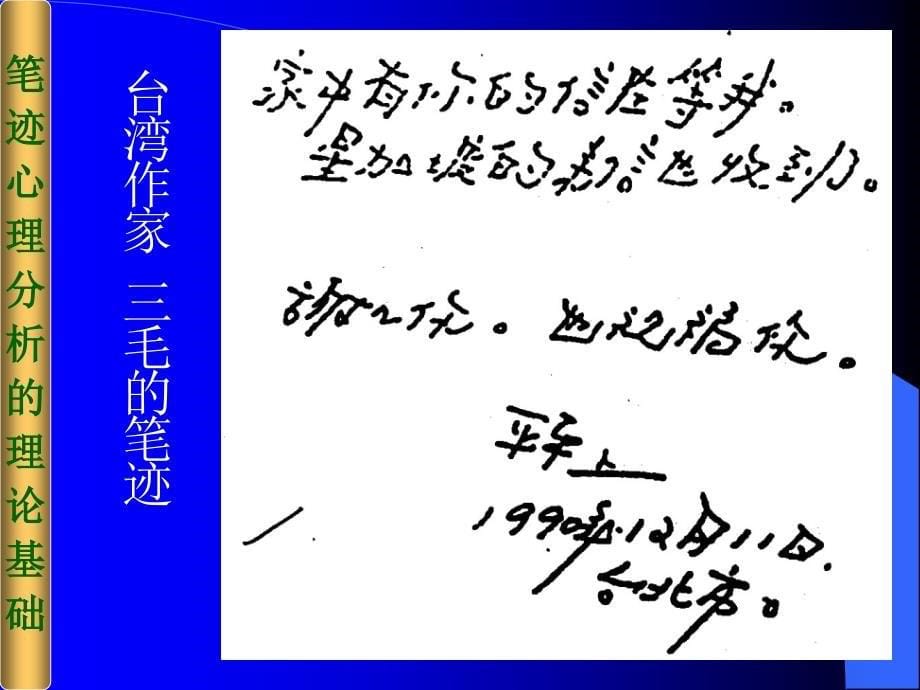 笔迹心理分析的理论基础
台湾作家 三毛的笔迹
家中有你的信在等我。
星加坡的新信也收到了。
谢谢你。也祝福你。
平上
1990年12月11日.
台北市。